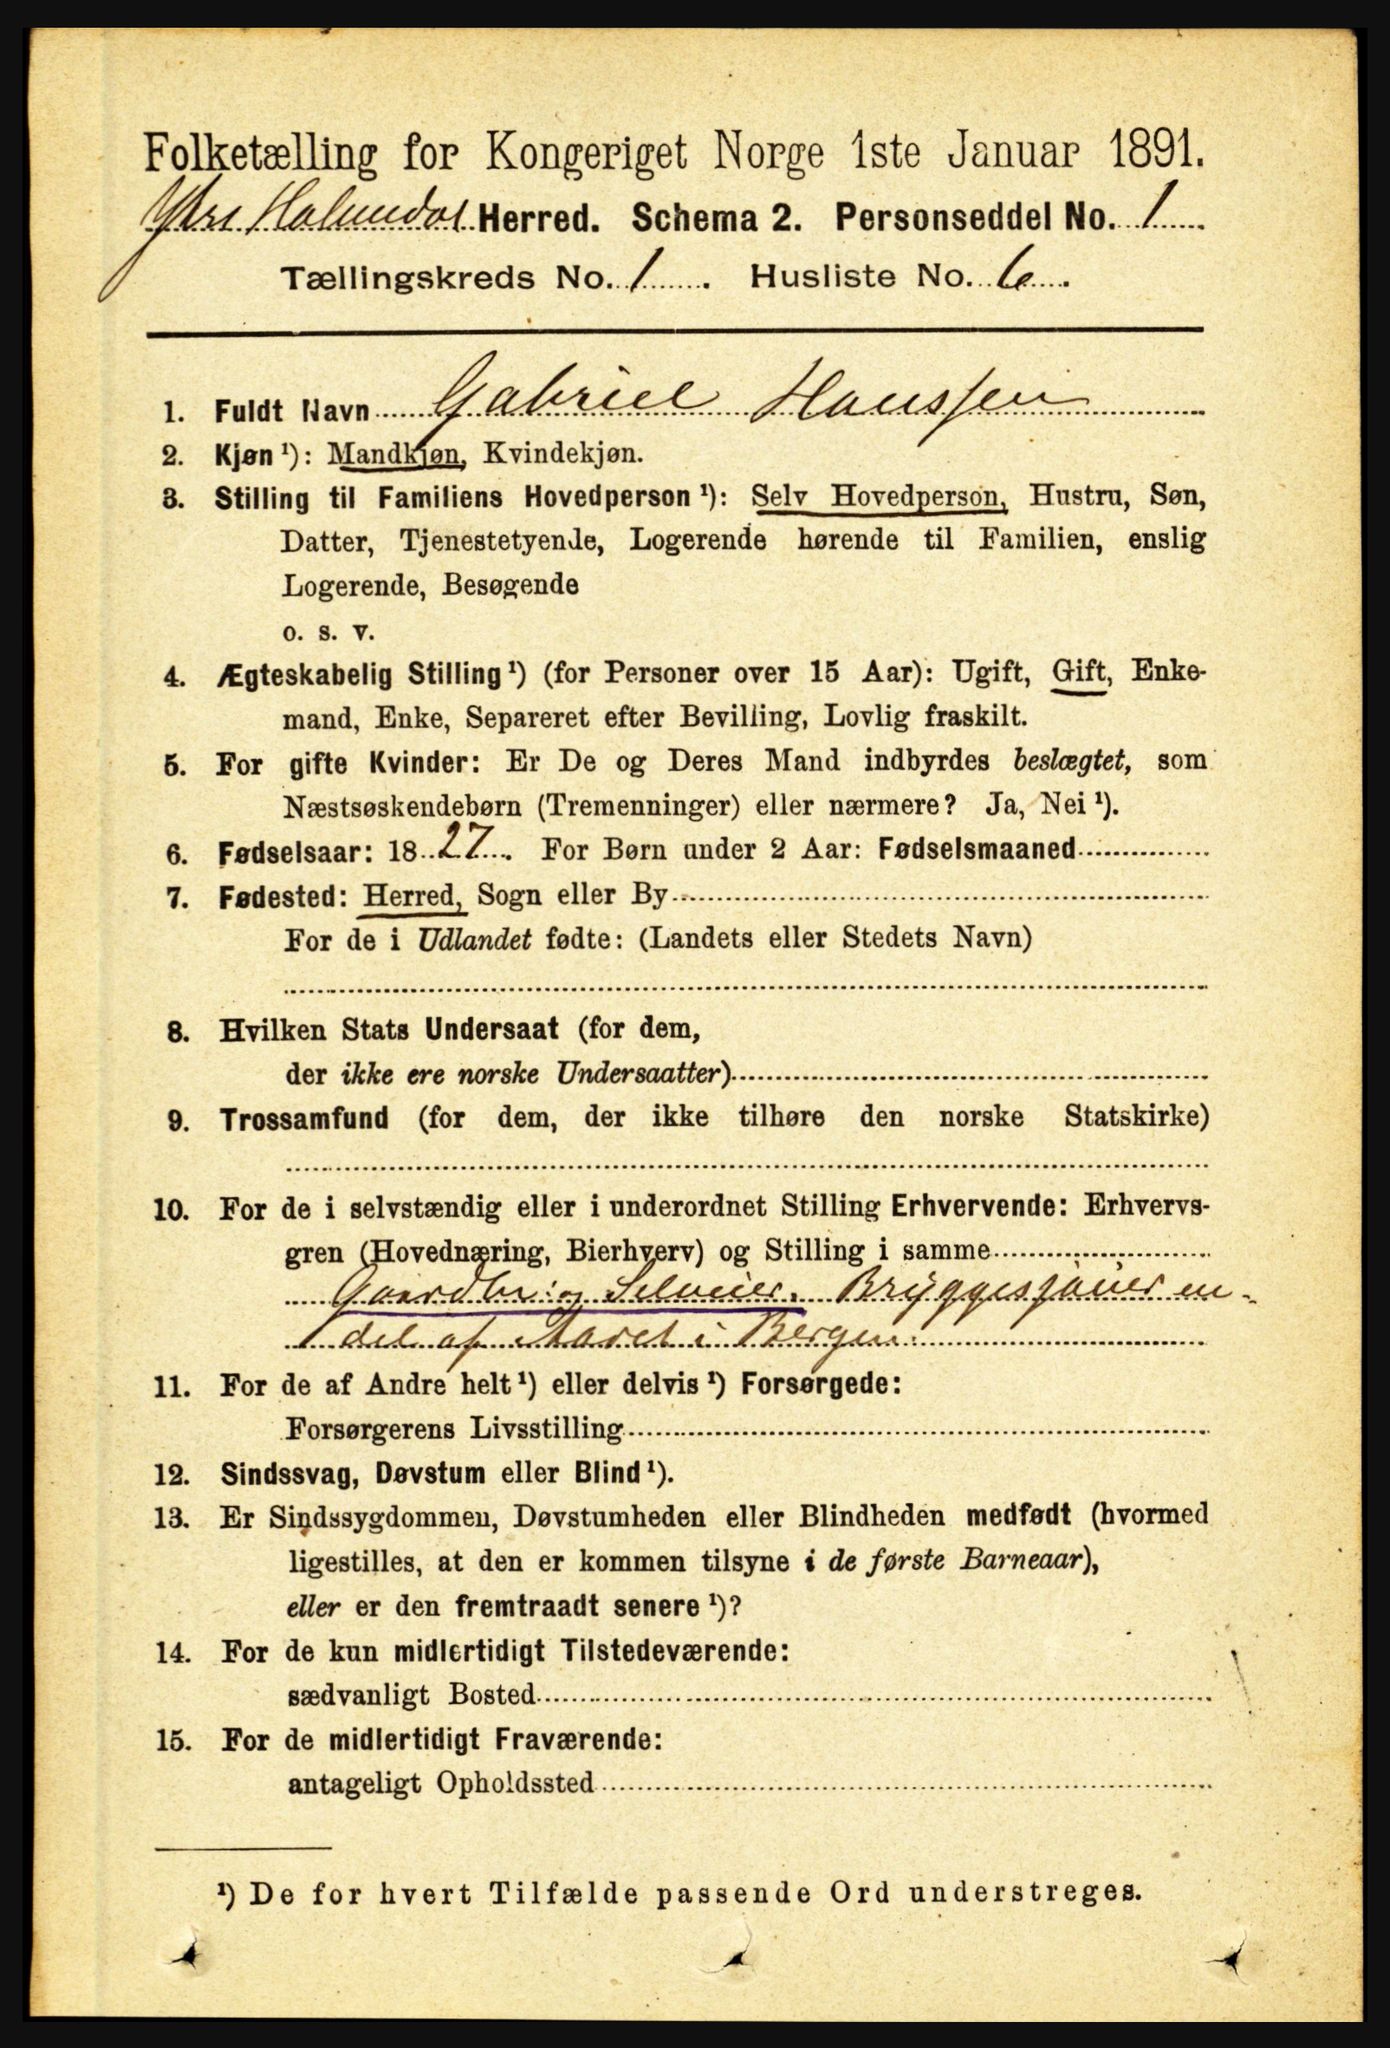 Folketælling for Kongeriget Norge 1ste Januar 1891.
Ytre Holmedal Herred. Schema 2. Personseddel No. 1
Tællingskreds No. 1. Husliste No. 6.
1. Fuldt Navn Gabriel Hanssen
2. Kjøn ¹): Mandkjøn, Kvindekjøn.
3. Stilling til Familiens Hovedperson ¹): Selv Hovedperson, Hustru, Søn,
Datter, Tjenestetyende, Logerende hørende til Familien, enslig
Logerende, Besøgende
o. s. v.
4. Ægteskabelig Stilling ¹) (for Personer over 15 Aar): Ugift, Gift, Enke-
mand, Enke, Separeret efter Bevilling, Lovlig fraskilt.
5. For gifte Kvinder: Er De og Deres Mand indbyrdes beslægtet, som
Næstsøskendebørn (Tremenninger) eller nærmere? Ja, Nei ¹).
6. Fødselsaar: 1827. For Børn under 2 Aar: Fødselsmaaned
7. Fødested: Herred, Sogn eller By
For de i Udlandet fødte: (Landets eller Stedets Navn)
8. Hvilken Stats Undersaat (for dem,
der ikke ere norske Undersaatter)
9. Trossamfund (for dem, der ikke tilhøre den norske Statskirke)
10. For de i selvstændig eller i underordnet Stilling Erhvervende: Erhvervs-
gren (Hovednæring, Bierhverv) og Stilling i samme
Gaardbr: og Selveier. Bryggesjauer en-
del af Aaret i Bergen.
11. For de af Andre helt ¹) eller delvis ¹) Forsørgede:
Forsørgerens Livsstilling
12. Sindssvag, Døvstum eller Blind ¹).
13. Er Sindssygdommen, Døvstumheden eller Blindheden medfødt (hvormed
ligestilles, at den er kommen tilsyne i de første Barneaar),
eller er den fremtraadt senere ¹)?
14. For de kun midlertidigt Tilstedeværende:
sædvanligt Bosted
15. For de midlertidigt Fraværende:
antageligt Opholdssted
¹) De for hvert Tilfælde passende Ord understreges.